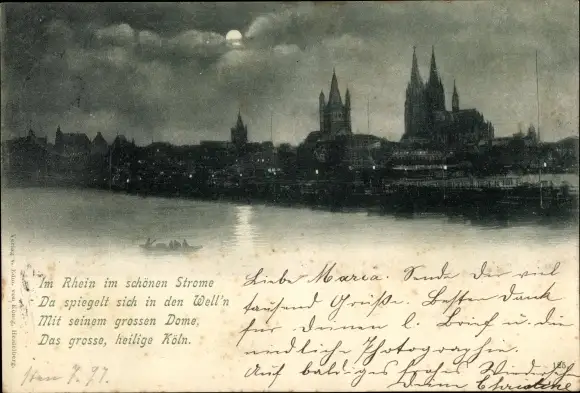 Im Rhein im schönen Strome
Da spiegelt sich in den Well'n
Mit seinem grossen Dome,
Das grosse, heilige Köln.
Liebe Maria. Sende Dir viel
tausend Grüße. Besten Dank
für deinen l. Brief u. die
endliche Photographie.
Auf baldiges frohes Wiedersehen
Deine Christine
7.97.
Verlag v.